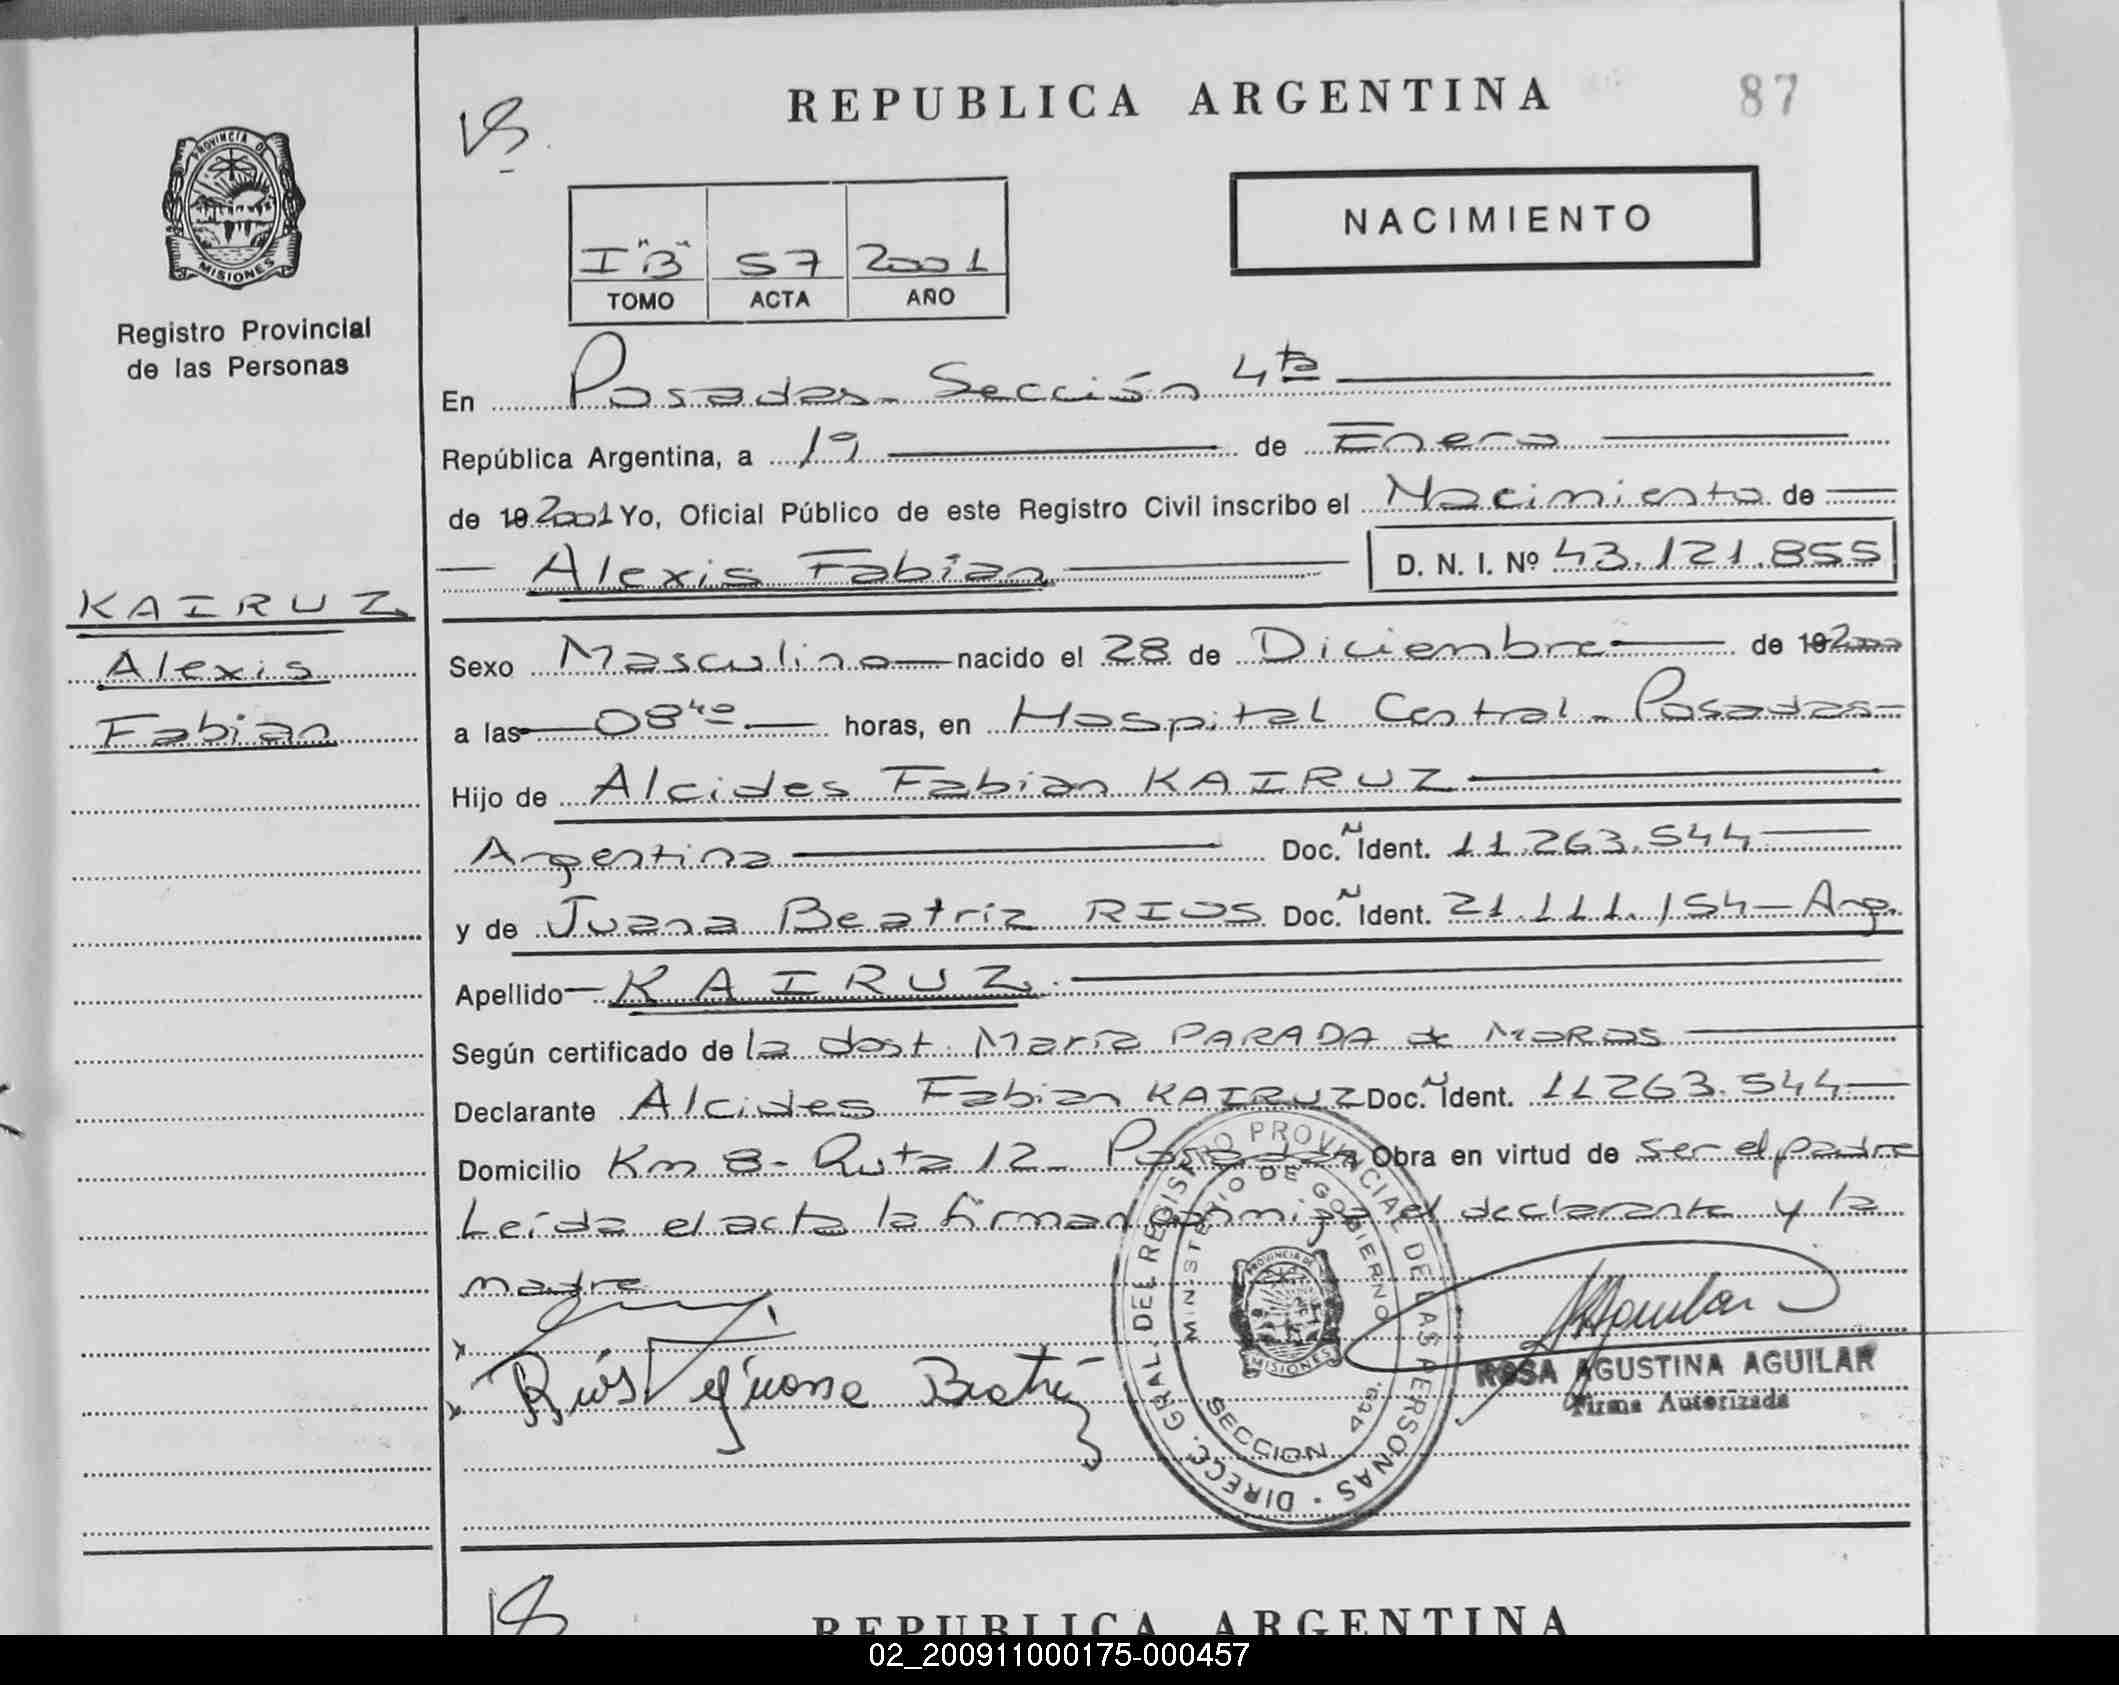 REPUBLICA ARGENTINA
87
PROVINCIA DE
MISIONES
Registro Provincial
de las Personas
NACIMIENTO
I "B" 57 2001
TOMO ACTA AÑO
En Posadas - Sección 4ta
República Argentina, a 19 de Enero
de 19 2001 Yo, Oficial Público de este Registro Civil inscribo el Nacimiento de
Alexis Fabian D. N. I. Nº 43.121.855
KAIRUZ
Alexis
Fabian
Sexo Masculino nacido el 28 de Diciembre de 19 2000
a las 08 40 horas, en Hospital Central - Posadas
Hijo de Alcides Fabian KAIRUZ
Argentina Doc. N Ident. 11.263.544
y de Juana Beatriz RIOS Doc. N Ident. 21.111.154 - Arg.
Apellido KAIRUZ
Según certificado de la doct. María PARADA de
Declarante Alcides Fabian KAIRUZ Doc. N Ident. 11263.544
Domicilio Km 8 - Ruta 12 - Posadas Obra en virtud de ser el padre
Leída el acta la firman conmigo el declarante y la
madre
x
x Ríos Juana Beatriz
DIRECC. GRAL. DEL REGISTRO PROVINCIAL DE LAS PERSONAS
MINISTERIO DE GOBIERNO
PROVINCIA DE
MISIONES
SECCION 4ta.
ROSA AGUSTINA AGUILAR
Firma Autorizada
REPUBLICA ARGENTINA
02_200911000175-000457